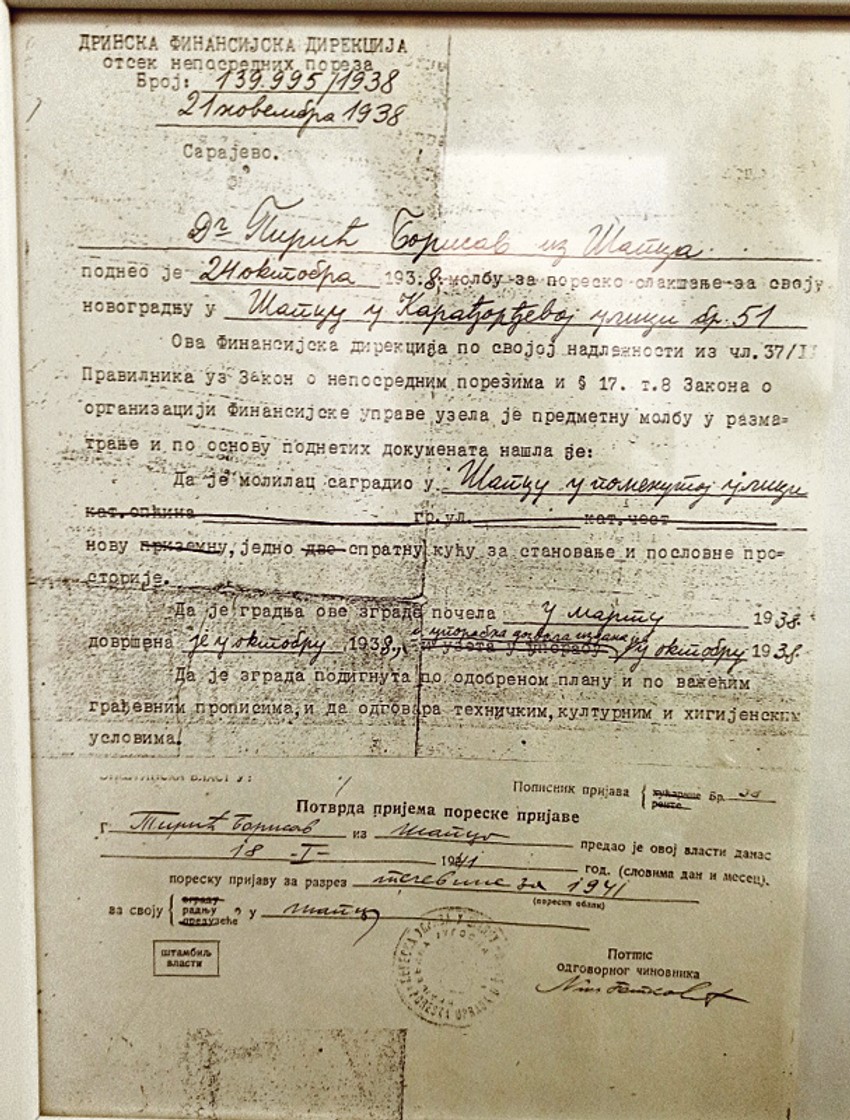 ДРИНСКА ФИНАНСИЈСКА ДИРЕКЦИЈА
отсек непосредних пореза
Број: 139.995/1938
21 новембра 1938
Сарајево.
Др Пирић Борисав из Шапца
поднео је 24 октобра 1938. молбу за пореско олакшање за своју
новоградњу у Шапцу у Карађорђевој улици бр. 51
Ова Финансијска дирекција по својој надлежности из чл. 37/II
Правилника уз Закон о непосредним порезима и § 17. т.8 Закона о
организацији Финансијске управе узела је предметну молбу у разма-
трање и по основу поднетих докумената нашла је:
Да је молилац саградио у Шапцу у поменутој улици
кат. општина гр. ул. кат. чест
нову приземну, једно две спратну кућу за становање и пословне про-
сторије.
Да је градња ове зграде почела у марту 1938.
и употребна дозвола издана је
довршена је у октобру 1938., и узета у употребу у октобру 1938.
Да је зграда подигнута по одобреном плану и по важећим
грађевним прописима, и да одговара техничким, културним и хигијенским
условима.
Пописник пријава { кућарине ренте Бр. 38
Потврда пријема пореске пријаве
г. Пирић Борисав из Шапца предао је овој власти данас
18 -I- 1941 год. (словима дан и месец).
пореску пријаву за разрез течевине за 1941
(порески облик)
за своју { зграду радњу предузеће у Шапцу
штамбиљ
власти
Потпис
одговорног чиновника